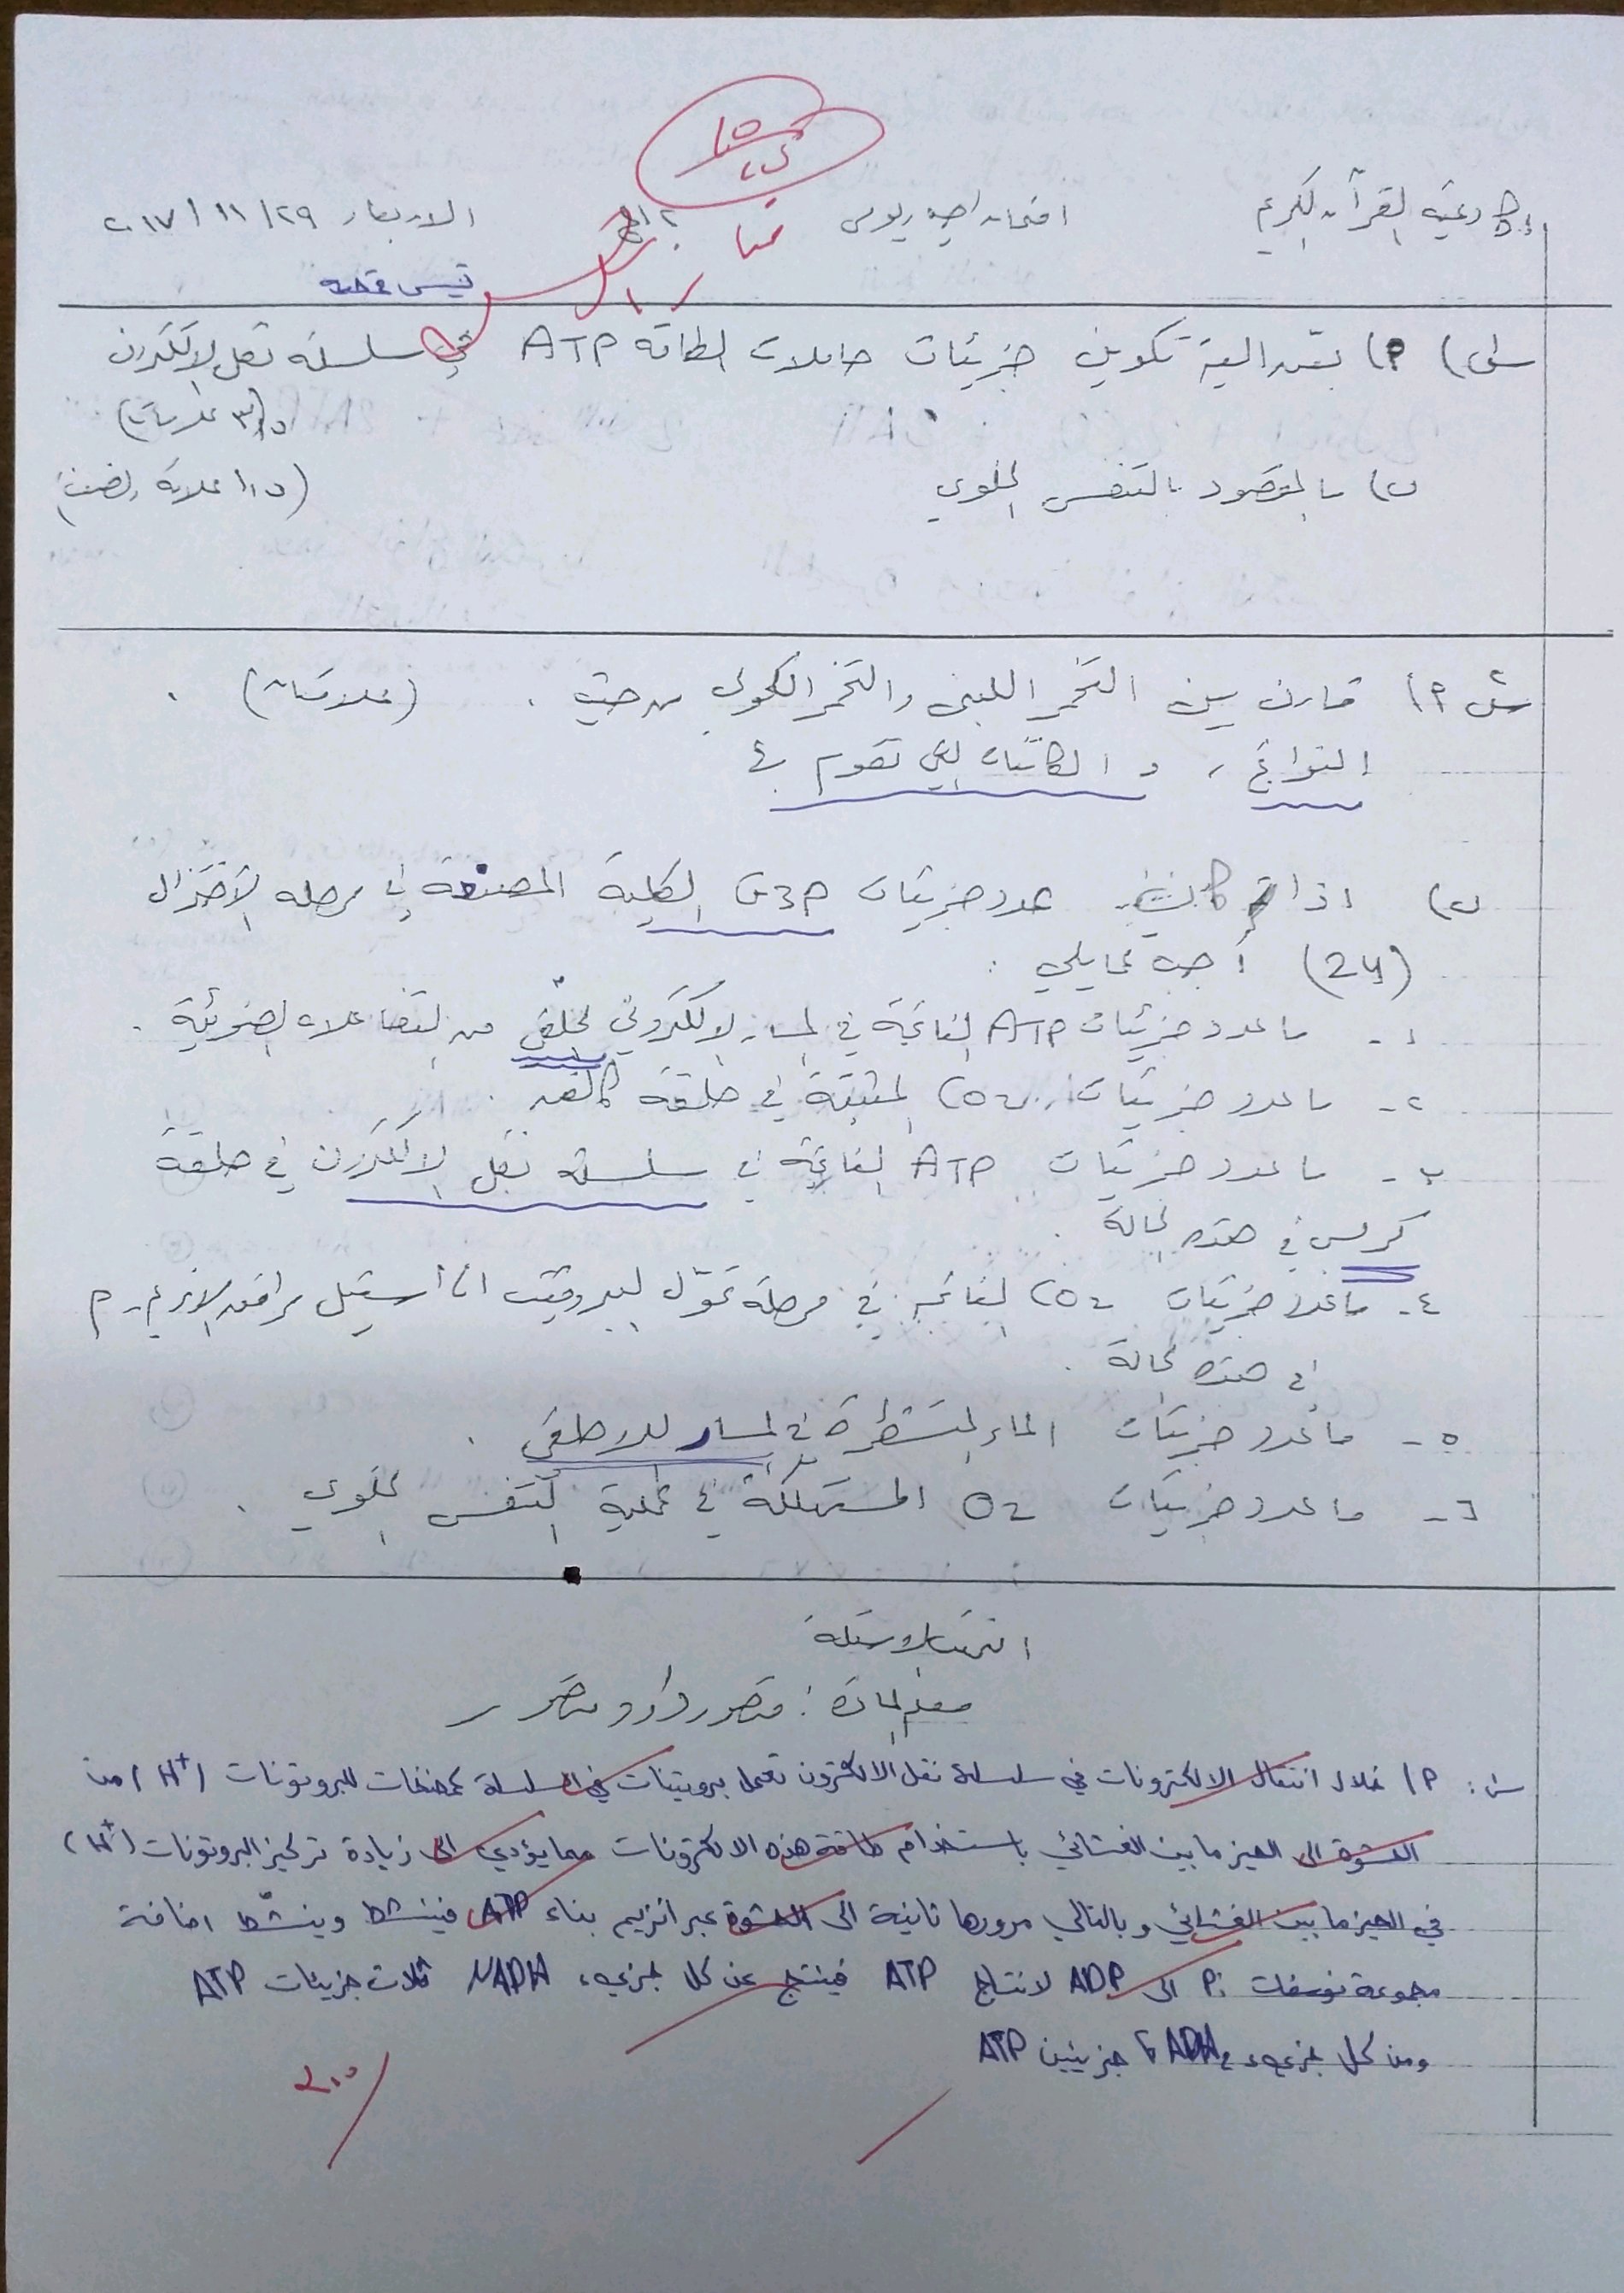 ١٥
١٥
جمعية القرآن الكريم امتحان احياء يومي الاربعاء ٢٩/ ١١/ ٢٠١٧
ممتاز
قيس
س١) أ) تتبع الية تكوين جزيئات حاملات الطاقة ATP في سلسلة نقل الالكترون
(٣٫٥ علامات)
ب) ما المقصود بالتنفس الخلوي (١٫٥ علامة ونصف)
س٢ أ) قارن بين التخمر اللبني والتخمر الكحولي من حيث . (علامتان) .
النواتج ، و الكائنات التي تقوم بـه
ب) اذا كانت عدد جزيئات G3P الكلية المصنعة في مرحلة الاختزال
(24) أجب عما يلي :
١- ما عدد جزيئات ATP الناتجة في المسار الالكتروني الحلقي من التفاعلات الضوئية .
٢- ما عدد جزيئات CO2 المثبتة في حلقة كالفن .
٣- ما عدد جزيئات ATP الناتجة في سلسلة نقل الالكترون في حلقة
كربس في هذه الحالة .
٤- ما عدد جزيئات CO2 الناتجة في مرحلة تحول البيروفيت الى أستيل مرافق الانزيم - م
في هذه الحالة .
٥- ما عدد جزيئات الماء المنشطرة في المسار اللاحلقي .
٦- ما عدد جزيئات O2 المستهلكة في عملية التنفس الخلوي .
انتهت الاسئلة
معلم المادة : منصور داود منصور
س١: أ) خلال انتقال الالكترونات في سلسلة نقل الالكترون تعمل بروتينات في السلسلة كمضخات للبروتونات (H+) من
الحشوة الى الحيز ما بين الغشائي باستخدام طاقة هذه الالكترونات مما يؤدي الى زيادة تركيز البروتونات (H+)
في الحيز ما بين الغشائي وبالتالي مرورها ثانية الى الحشوة عبر انزيم بناء ATP فينشط وينشّط اضافة
مجموعة فوسفات Pi الى ADP لانتاج ATP فينتج عن كل جزيء NADH ثلاث جزيئات ATP
ومن كل جزيء FADH2 جزيئين ATP
٣٫٥